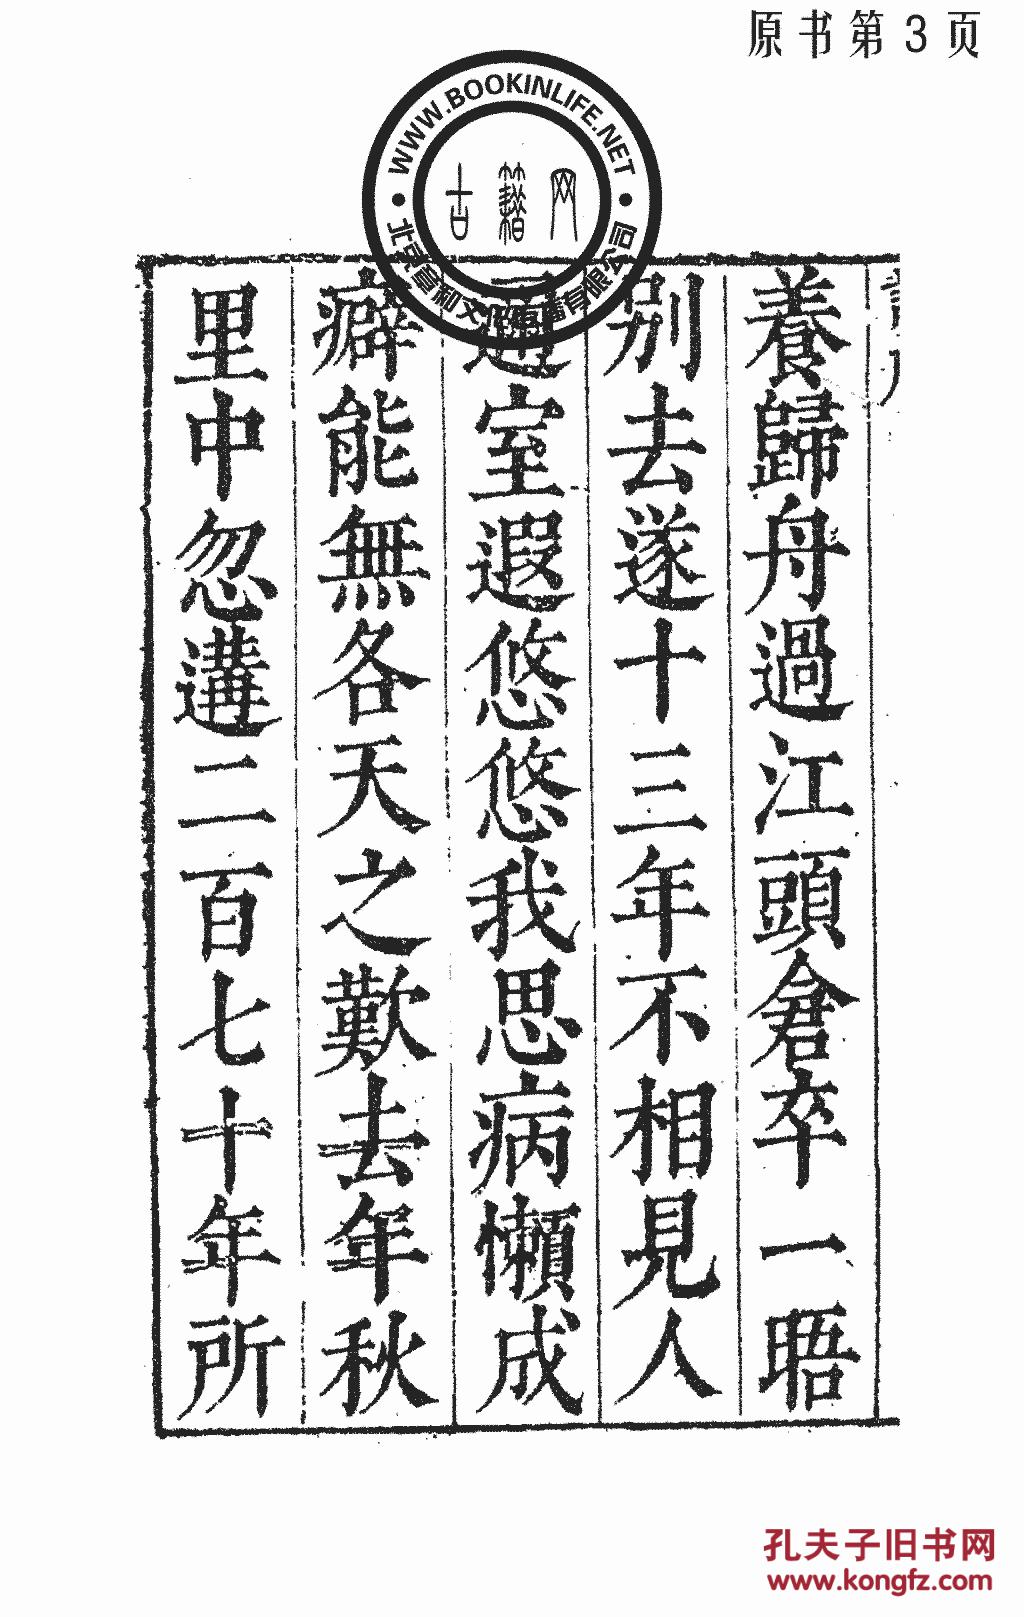 原书第3页
WWW.BOOKINLIFE.NET
古籍网
養歸舟過江頭倉卒一晤
別去遂十三年不相見人
室遐悠悠我思病懶成
癖能無各天之歎去年秋
里中忽遘二百七十年所
孔夫子旧书网
www.kongfz.com